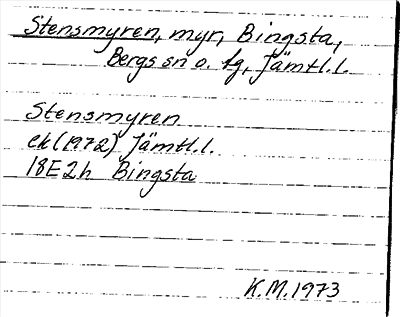 Stensmyren, myr, Bingsta,
Bergs sn o. tg, Jämtl.l.
Stensmyren
ek (1972) Jämtl.l.
18E2h Bingsta
K.M.1973